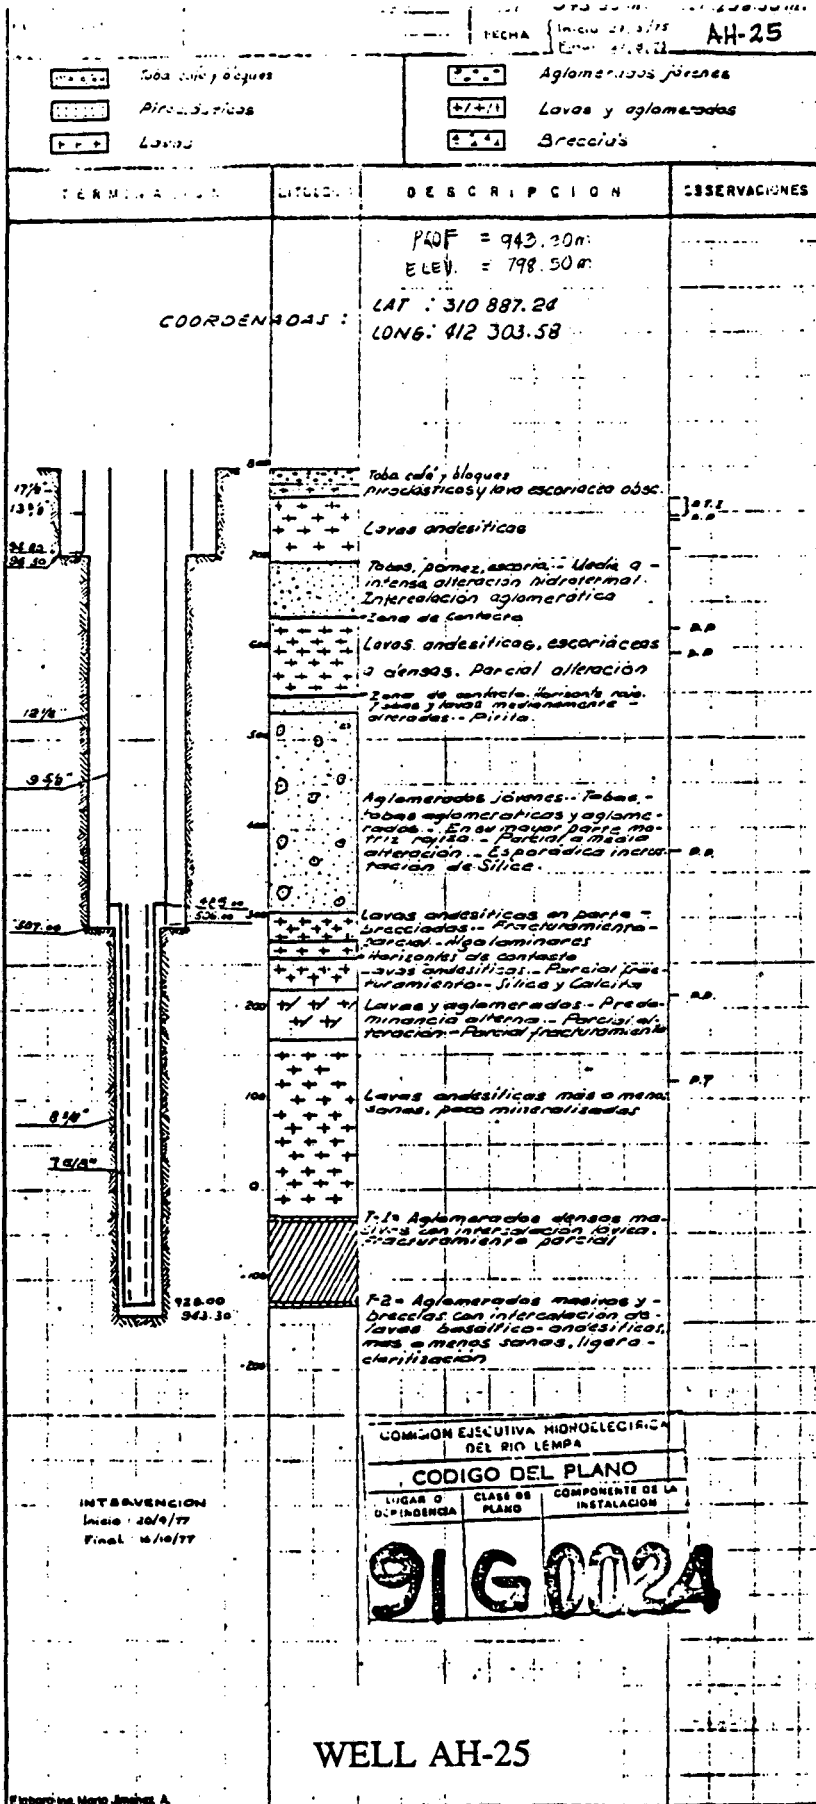 FECHA
AH-25
Toba café y bloques
Piroclásticos
Lavas
Aglomerados jóvenes
Lavas y aglomerados
Breccias
DESCRIPCION
OBSERVACIONES
PROF = 943.30m
ELEV. = 798.50m
COORDENADAS :
LAT : 310 887.24
LONG: 412 303.58
Toba café y bloques
piroclásticos y lava escoriacea obsc.
Lavas andesiticas
Tobas, pomez, escoria.- Media a -
intensa alteración hidrotermal.
Intercalación aglomerática
Zona de contacto
Lavas andesiticas, escoriáceas
a densas. Parcial alteración
Zona de contacto. Horizonte rojo.
Tobas y lavas medianamente -
alteradas.- Pirita.
Aglomerados jóvenes.- Tobas,-
tobas aglomeraticas y aglome-
rados.- En su mayor parte ma-
triz rojiza.- Parcial a media
alteración.- Esporádica incrus-
tación de Sílice.
Lavas andesiticas en parte -
brecciadas.- Fracturamiento-
parcial.- Algo laminares
Horizontes de contacto
Lavas andesiticas.- Parcial frac-
turamiento.- Sílice y Calcita
Lavas y aglomerados.- Predo-
minancia alterna.- Parcial al-
teración.- Parcial fracturamiento
Lavas andesiticas más o menos
sanas, poco mineralizadas
T-1= Aglomerados densos ma-
sivos con intercalación lávica.
Fracturamiento parcial
T-2= Aglomerados masivos y -
breccias con intercalación de -
lavas basáltico-andesiticas,
mas o menos sanas, ligera -
cloritización
700
600
500
400
300
200
100
0
-100
-200
9 5/8"
507.00
7 5/8"
928.00
943.30
D.P.
P.T
COMISION EJECUTIVA HIDROELECTRICA
DEL RIO LEMPA
CODIGO DEL PLANO
LUGAR O
DEPENDENCIA
CLASE DE
PLANO
COMPONENTE DE LA
INSTALACION
91 G 002A
INTERVENCION
Inicio : 20/9/77
Final : 16/10/77
WELL AH-25
Elaboró: Ing. Mario Jimenez A.